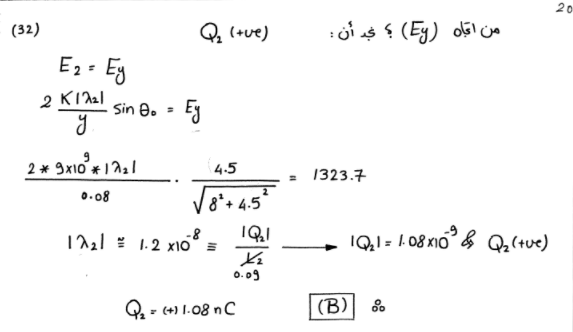 20
(32) Q₂ (+ve) من اتجاه (Ey) ؟ نجد أن :
E₂ = Ey
2 K|λ₂| / y sin θ₀ = Ey
2 * 9×10⁹ * |λ₂| / 0.08 · 4.5 / √(8² + 4.5²) = 1323.7
|λ₂| ≅ 1.2 ×10⁻⁸ ≡ |Q₂| / L₂ ⟶ |Q₂| = 1.08×10⁻⁹ & Q₂ (+ve)
0.09
Q₂ = (+) 1.08 nC (B)